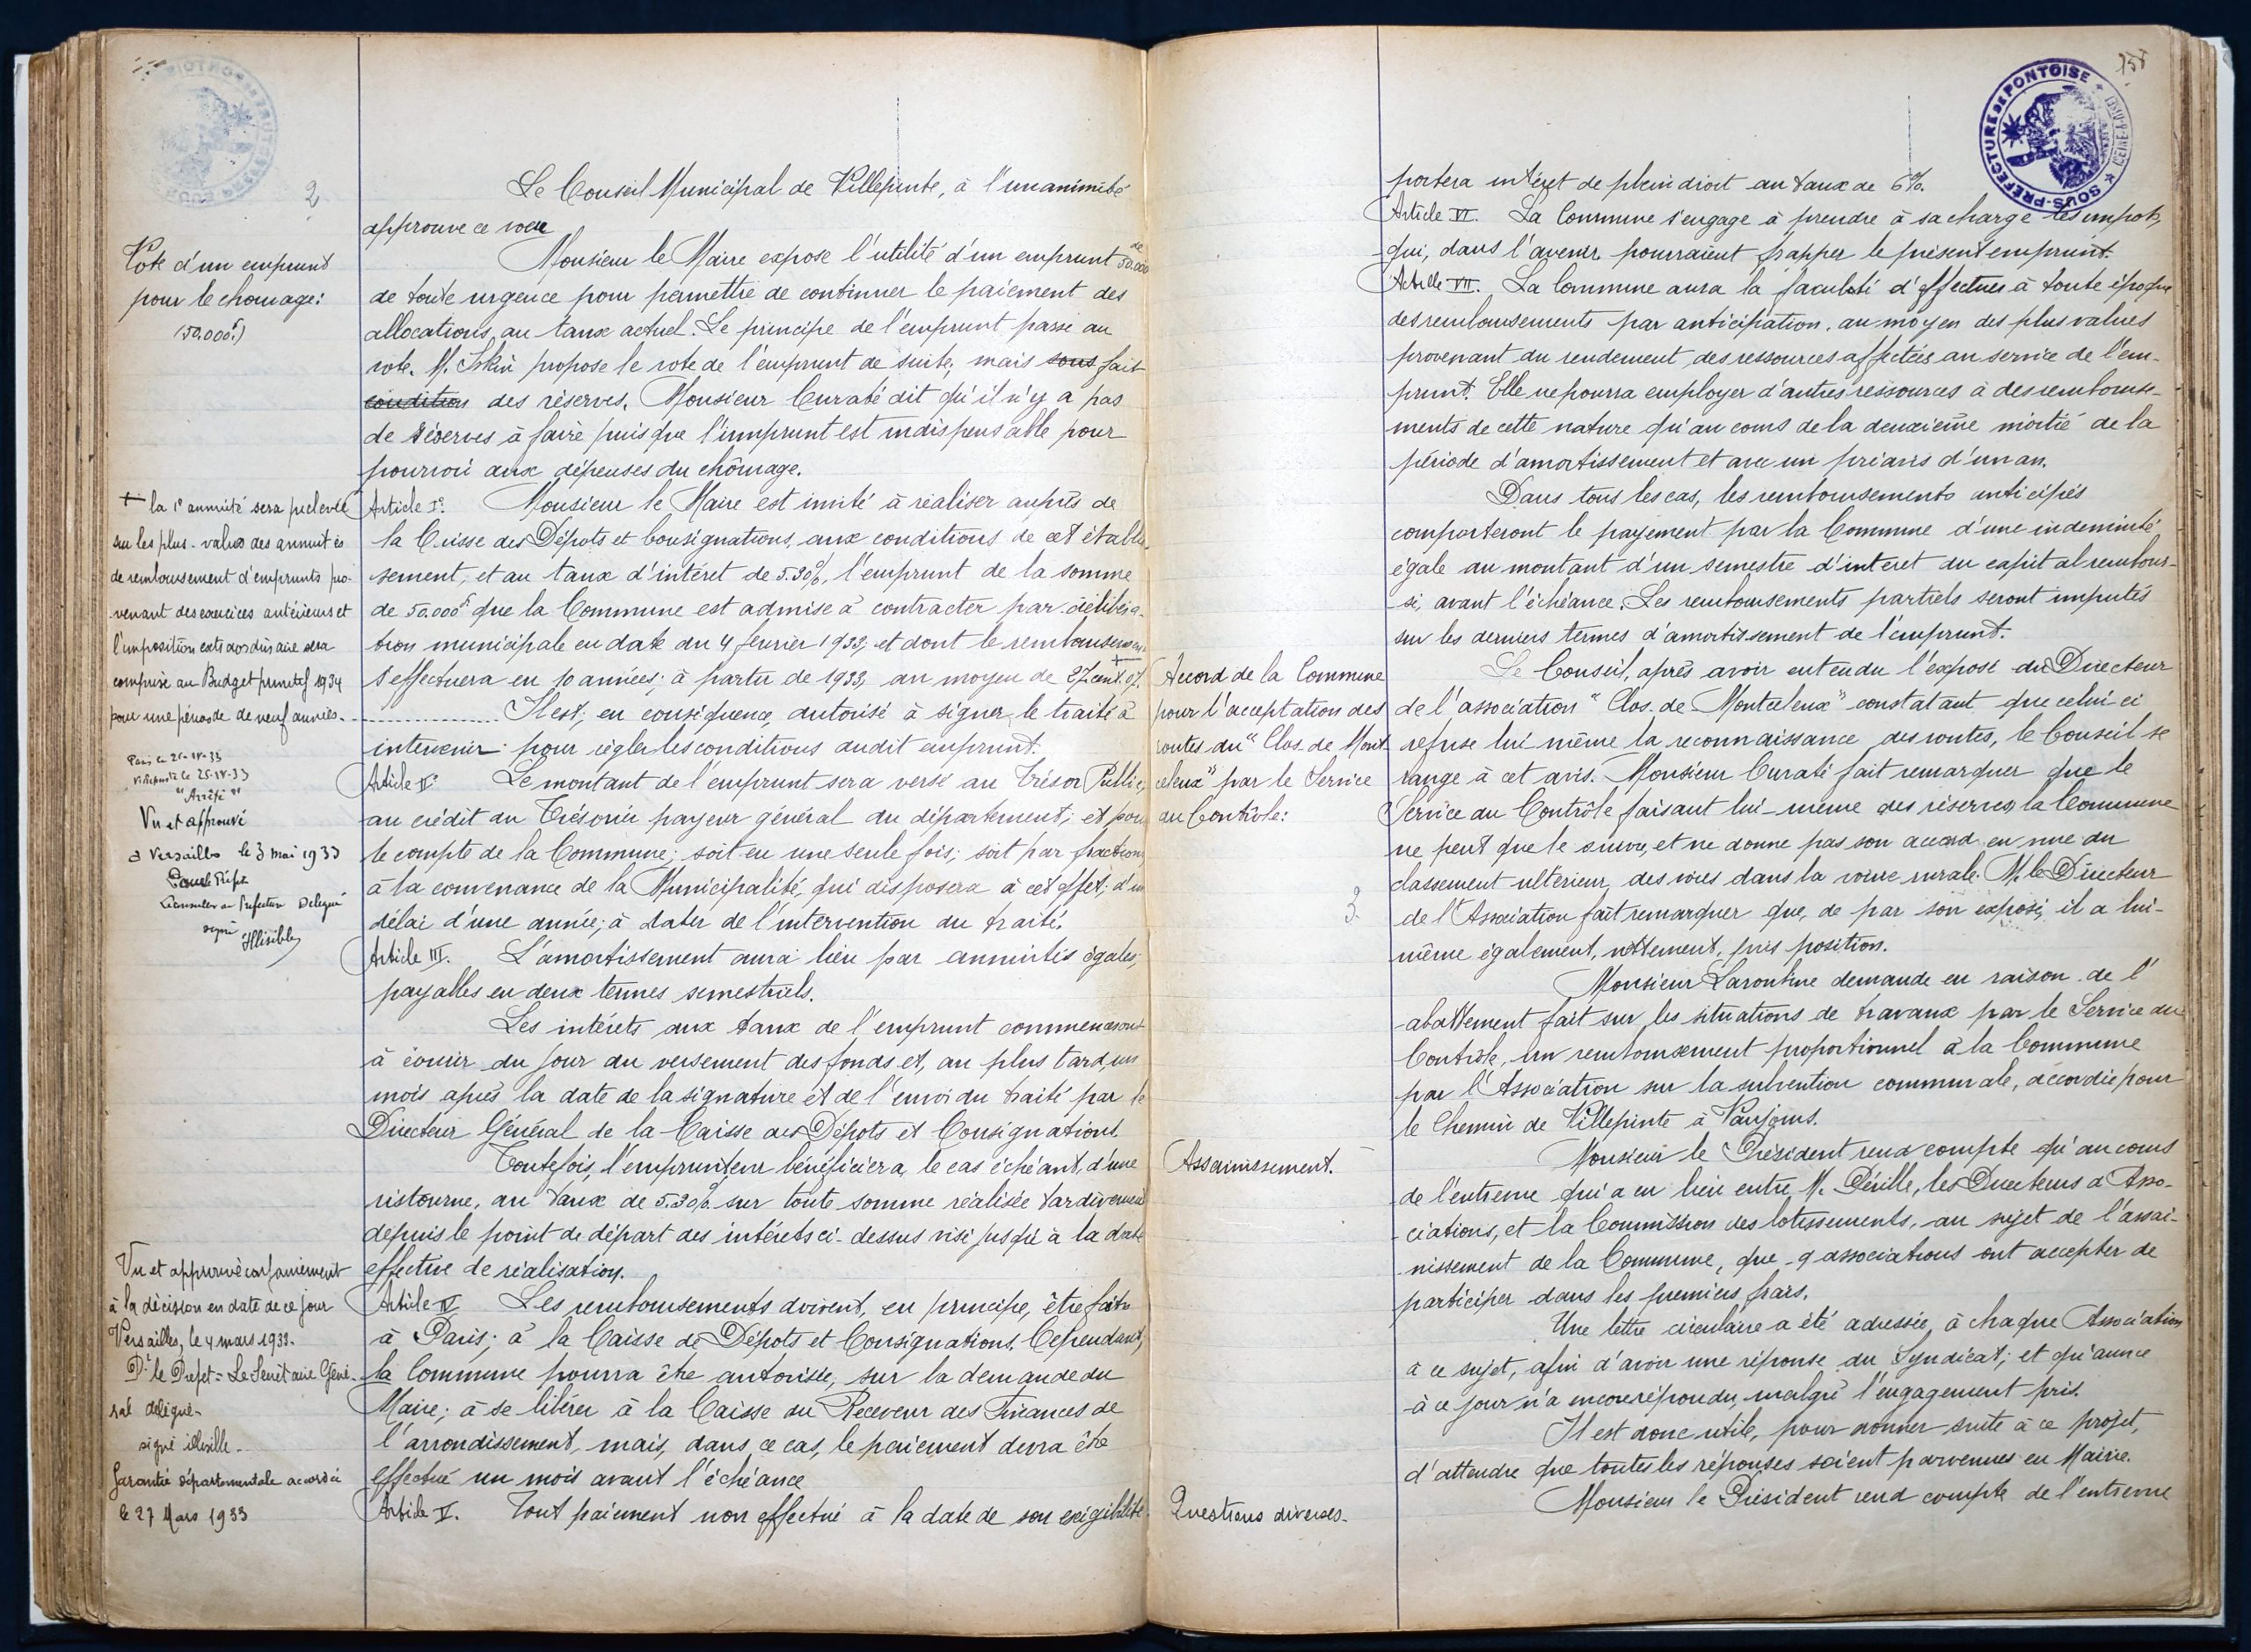 2
Le Conseil Municipal de Villepinte, à l'unanimité
approuve ce voeu
Vote d'un emprunt
pour le chomage:
(50.000f)
Monsieur le Maire expose l'utilité d'un emprunt de 50.000
de toute urgence pour permettre de continuer le paiement des
allocations au taux actuel. Le principe de l'emprunt passe au
vote. M. propose le vote de l'emprunt de suite, mais sous fait
condition des réserves. Monsieur Curaté dit qu'il n'y a pas
de réserves à faire puisque l'imprunt est indispensable pour
pourvoir aux dépenses du chômage.
Article I°. Monsieur le Maire est invité à réaliser auprès de
la Caisse des Dépots et Consignations, aux conditions de cet établis-
sement, et au taux d'intéret de 5.30%, l'emprunt de la somme
de 50.000f que la Commune est admise à contracter par délibéra-
tion municipale en date du 4 février 1933, et dont le remboursement
s'effectuera en 10 années; à partir de 1933, au moyen de 27 cent. 07. +
Il est, en conséquence, autorisé à signer le traité à
intervenir pour régler les conditions dudit emprunt.
+ la 1e annuité sera prelevée
sur les plus-values des annuités
de remboursement d'emprunts pro-
venant des exercices antérieurs et
l'imposition extraordinaire sera
comprise au Budget primitif 1934
pour une période de neuf années.
Paris le 25-IV-33
Villepinte le 25-IV-33
"Arrêté"
Vu et approuvé
à Versailles le 3 mai 1933
Préfet
Conseiller de Préfecture Delegué
signé
Illisible
Article II° Le montant de l'emprunt sera versé au Trésor Public,
au crédit du Trésorier payeur général du département; et pour
le compte de la Commune; soit en une seule fois; soit par fractions
à la convenance de la Municipalité, qui disposera à cet effet, d'un
délai d'une année; à dater de l'intervention du traité.
Article III. L'amortissement aura lieu par annuités égales,
payables en deux termes semestriels.
Les intérets aux taux de l'emprunt commenceront
à courir du jour du versement des fonds et, au plus tard, un
mois après la date de la signature et de l'envoi du traité par le
Directeur Général de la Caisse des Dépots et Consignations.
Toutefois, l'emprunteur bénéficiera, le cas échéant, d'une
ristourne, au taux de 5.30% sur toute somme réalisée tardivement
depuis le point de départ des intérets ci-dessus visé jusqu'à la date
effective de réalisation.
Vu et approuvé conformément
à la décision en date de ce jour
Versailles, le 4 mars 1933.
Pr le Prefet = Le Secrétaire Géné-
ral délégué-
signé illisible-
Garantie départementale accordée
le 27 Mars 1933
Article IV Les remboursements doivent, en principe, être faits
à Paris; à la Caisse de Dépots et Consignations. Cependant,
la Commune pourra être autorisée, sur la demande du
Maire; à se libérer à la Caisse du Receveur des Finances de
l'arrondissement, mais, dans ce cas, le paiement devra être
effectué un mois avant l'échéance
Article V. Tout paiement non effectué à la date de son exigibilité
SOUS-PREFECTURE DE PONTOISE
portera intéret de plein droit au taux de 6%.
Article VI. La Commune s'engage à prendre à sa charge les impots,
qui, dans l'avenir, pourraient frapper le présent emprunt.
Article VII. La Commune aura la faculté d'effectuer à toute époque
des remboursements par anticipation, au moyen des plus values
provenant du rendement des ressources affectées au service de l'em-
prunt. Elle ne pourra employer d'autres ressources à des rembourse-
ments de cette nature qu'au cours de la deuxième moitié de la
période d'amortissement et avec un préavis d'un an.
Dans tous les cas, les remboursements anticipés
comporteront le payement par la Commune d'une indemnité
égale au montant d'un semestre d'intéret du capital rembour-
sé, avant l'échéance. Les remboursements partiels seront imputés
sur les derniers termes d'amortissement de l'emprunt.
Accord de la Commune
pour l'acceptation des
routes du "Clos de Mont-
celeux" par le Service
du Contrôle:
Le Conseil, après avoir entendu l'exposé du Directeur
de l'association "Clos de Montceleux" constatant que celui-ci
refuse lui même la reconnaissance des routes, le Conseil se
range à cet avis. Monsieur Curaté fait remarquer que le
Service du Contrôle faisant lui-même des réserves, la Commune
ne peut que le suivre, et ne donne pas son accord en vue du
classement ultérieur des voies dans la voirie rurale. M. le Directeur
3
de l'Association fait remarquer que, de par son exposé, il a lui-
même également, nettement, pris position.
Monsieur Larontine demande en raison de l'
abattement fait sur les situations de travaux par le Service du
Contrôle, un remboursement proportionnel à la Commune
par l'Association sur la subvention communale, accordée pour
le Chemin de Villepinte à Vaujours.
Assainissement.
Monsieur le Président rend compte qu'au cours
de l'entrevue qui a eu lieu entre M. Déville, les Directeurs d'Asso-
ciations, et la Commission des lotissements, au sujet de l'assai-
nissement de la Commune, que 9 associations ont accepter de
participer dans les premiers frais.
Une lettre circulaire a été adressée, à chaque Association
à ce sujet, afin d'avoir une réponse du Syndicat; et qu'aucune
à ce jour n'a encore répondu, malgré l'engagement pris.
Il est donc utile, pour donner suite à ce projet,
d'attendre que toutes les réponses soient parvenues en Mairie.
Questions diverses.
Monsieur le Président rend compte de l'entrevue